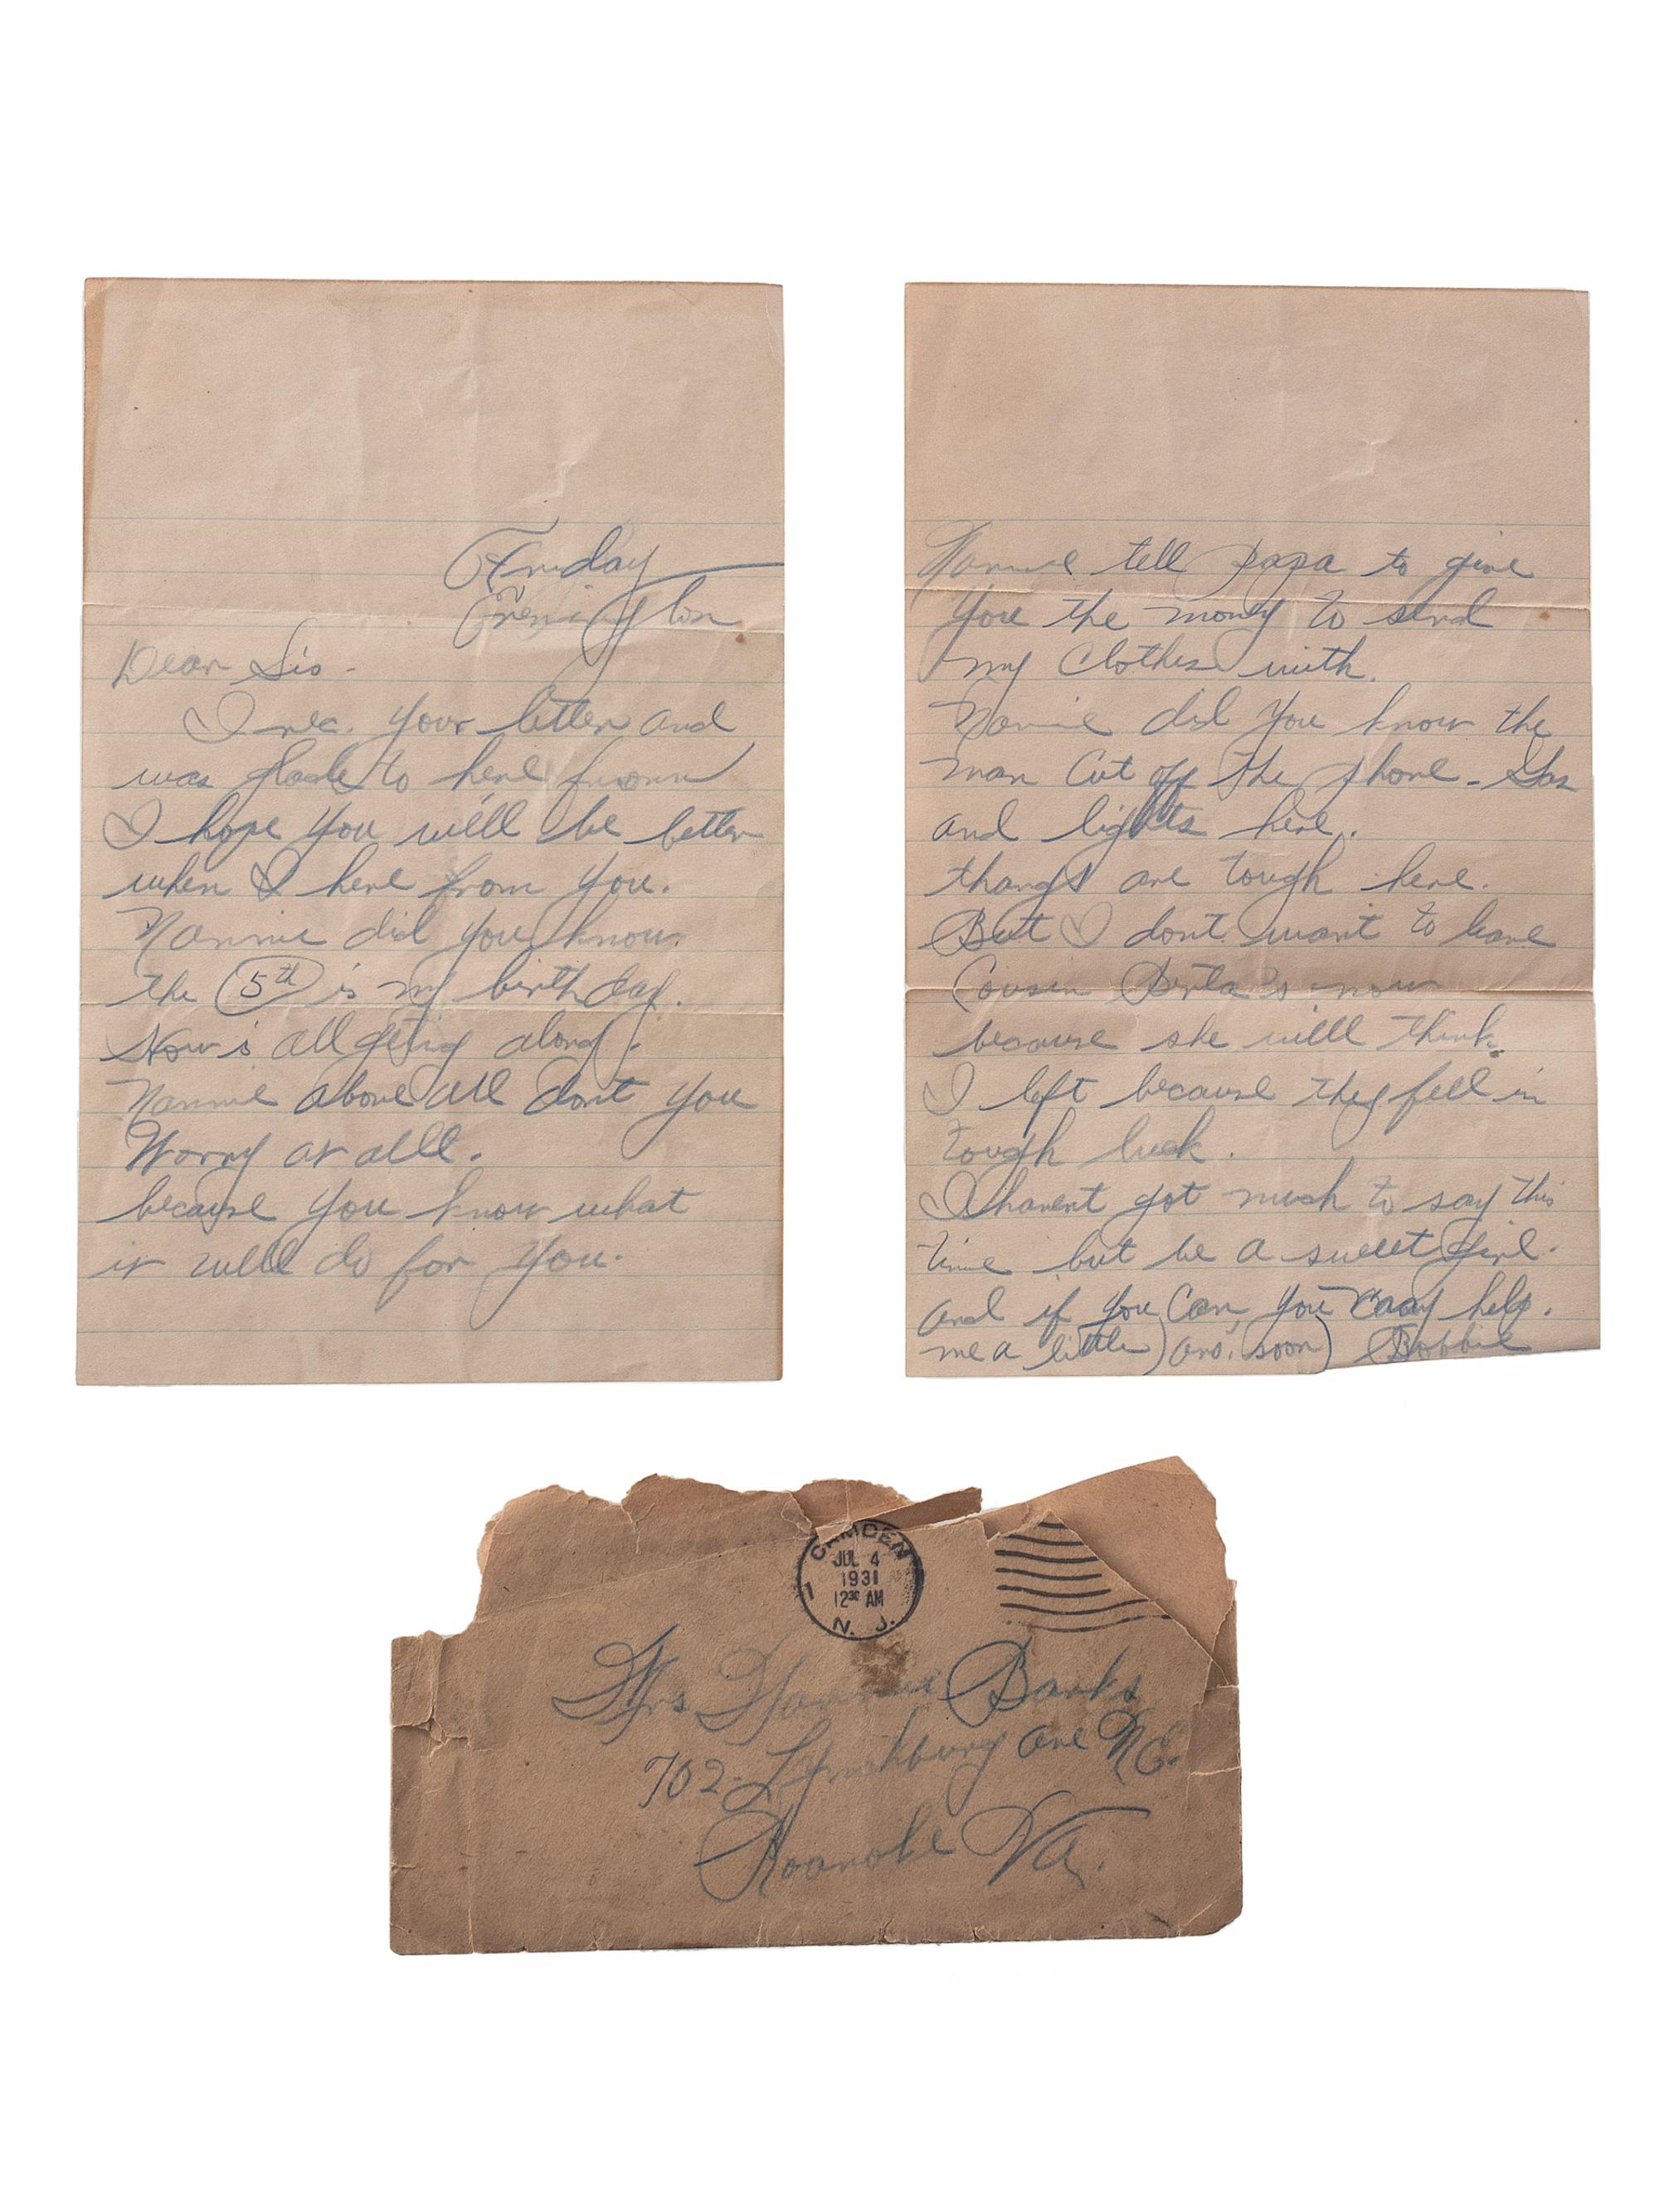 Friday
Dear Sis -
I rec. your letter and
was glade to here from
I hope you willl be better
when I here from you.
Nannie did you know.
the 5th is my birthday.
How is all geting along.
Nannie above all dont you
Worry at alll.
because you know what
it willl do for you.
Nannie tell papa to give
You the money to send
my Clothes with.
Nannie did you know the
man Cut off the phone - Gas
and lights here.
thangs are tough here.
But I dont want to leave
Cousin Berta's now
because she willl think
I left because they fell in
tough luck.
I havent got much to say this
time but be a sweet girl.
and if you Can, you may help.
me a little) and. (soon) Bobbie
CAMDEN
JUL 4
1931
12 30 AM
1
N. J.
Mrs Nannie Banks
702 Lynchburg Ave N.E.
Roanoke Va.